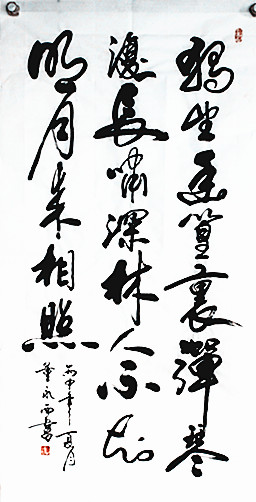 獨坐幽篁裏彈琴
復長嘯深林人不知
明月来相照
丙申年夏月
永西書